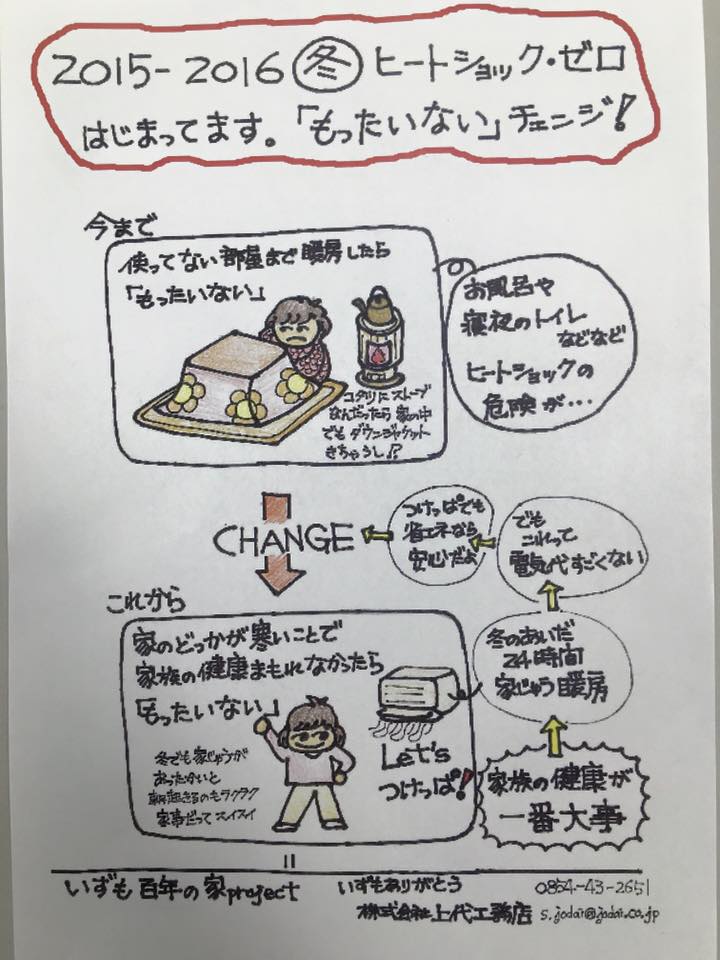 2015-2016 冬 ヒートショック・ゼロ
はじまってます。「もったいない」チェンジ!
今まで
使ってない部屋まで暖房したら
「もったいない」
コタツにストーブ
なんだったら家の中
でもダウンジャケット
きちゃうし!?
お風呂や
寝夜のトイレ
などなど
ヒートショックの
危険が…
CHANGE
つけっぱでも
省エネなら
安心だよ
でも
これって
電気代すごくない
これから
家のどっかが寒いことで
家族の健康まもれなかったら
「もったいない」
冬でも家じゅうが
あったかいと
朝起きるのもラクラク
家事だってスイスイ
Let's
つけっぱ!
冬のあいだ
24時間
家じゅう暖房
家族の健康が
一番大事
=
いずも百年の家project
いずもありがとう
株式会社上代工務店
0854-43-2651
s.jodai@jodai.co.jp